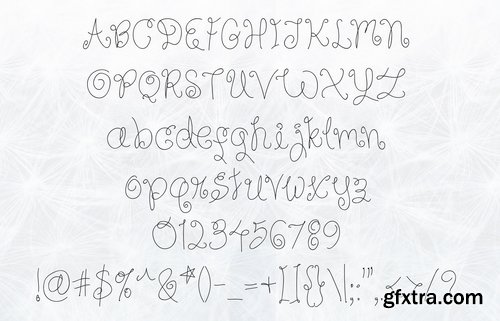 ABCDEFGHIJKLMN
OPQRSTUVWXYZ
abcdefghijklmn
opqrstuvwxyz
0123456789
!@#$%^&*()-_=+[]{}\|;:'",.<>/?
gfxtra.com